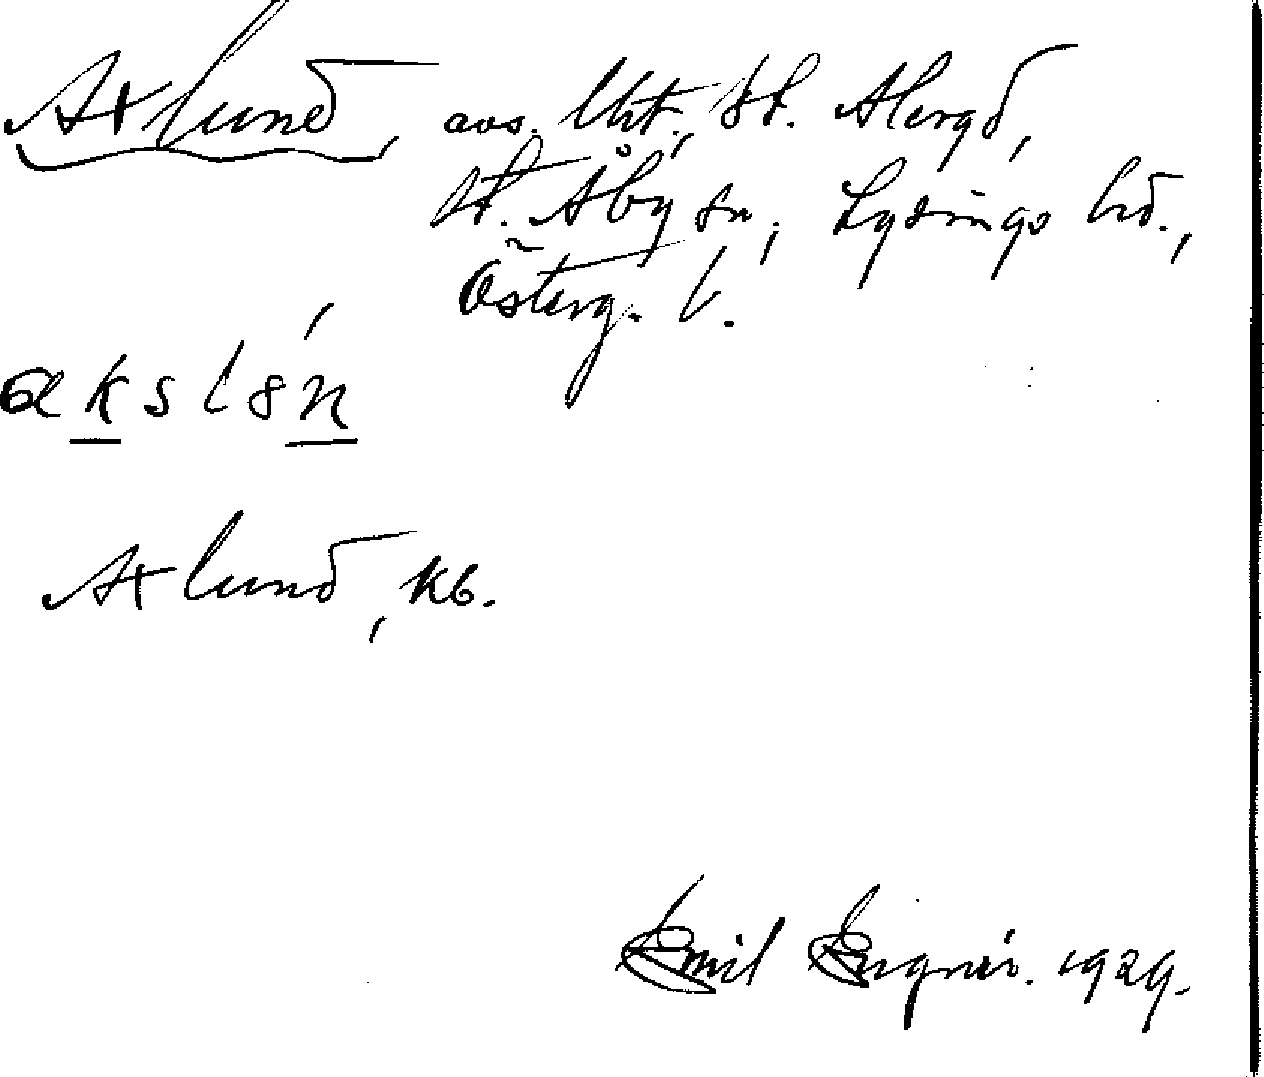 Axlund, avs. lht., St. Ålergd,
St. Åby sn, Lysings hd.,
Österg. l.
akslún
Axlund, kb.
Emil 1929.